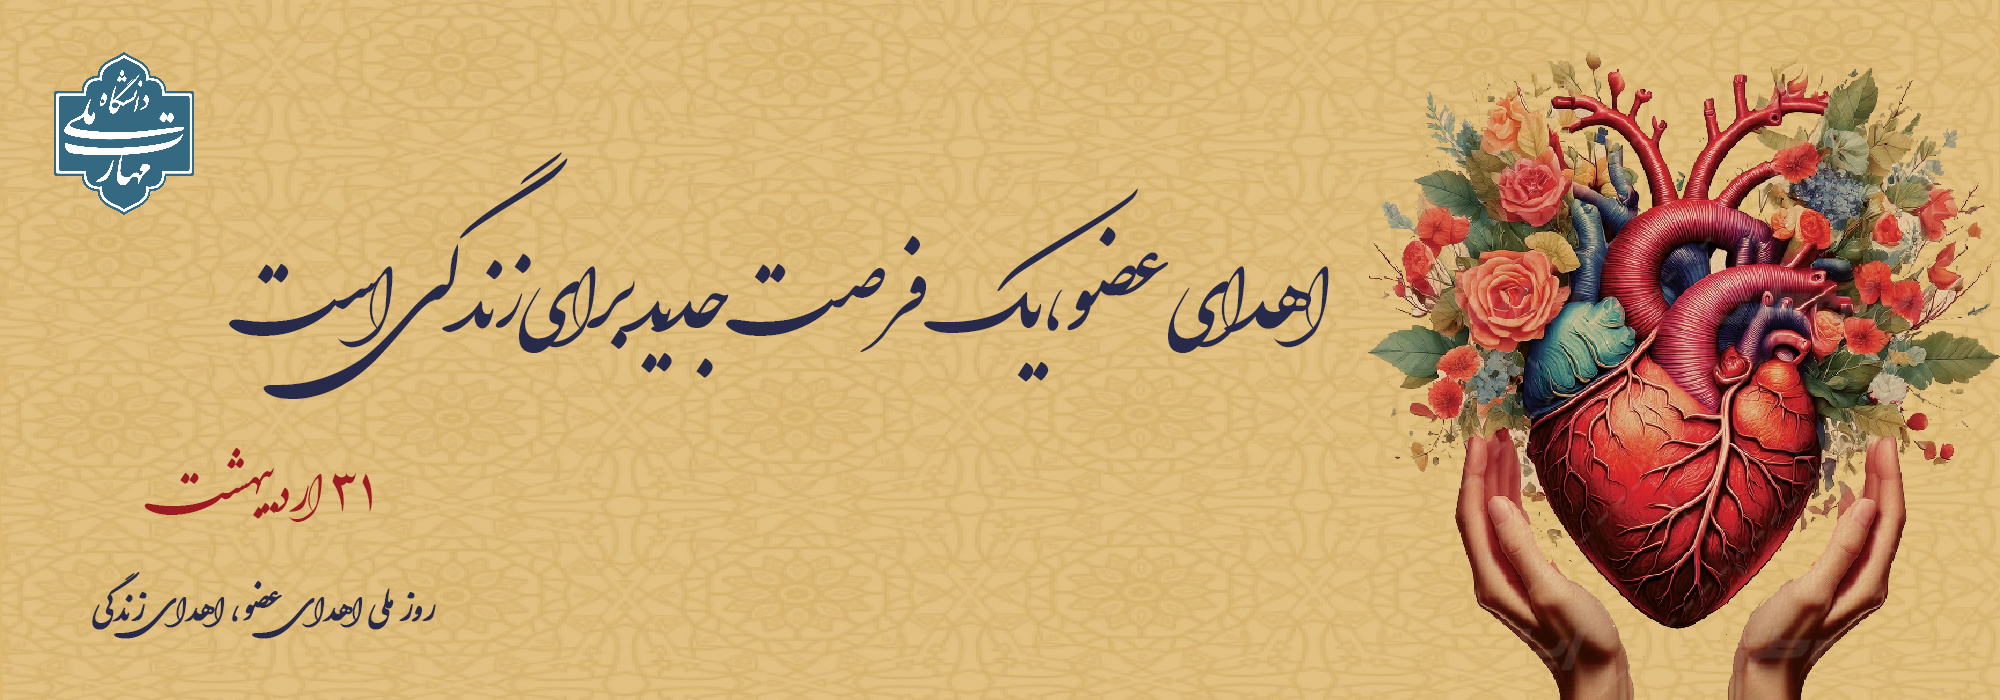 دانشگاه ملی
مهارت
اهدای عضو، یک فرصت جدید برای زندگی است
۳۱ اردیبهشت
روز ملی اهدای عضو، اهدای زندگی